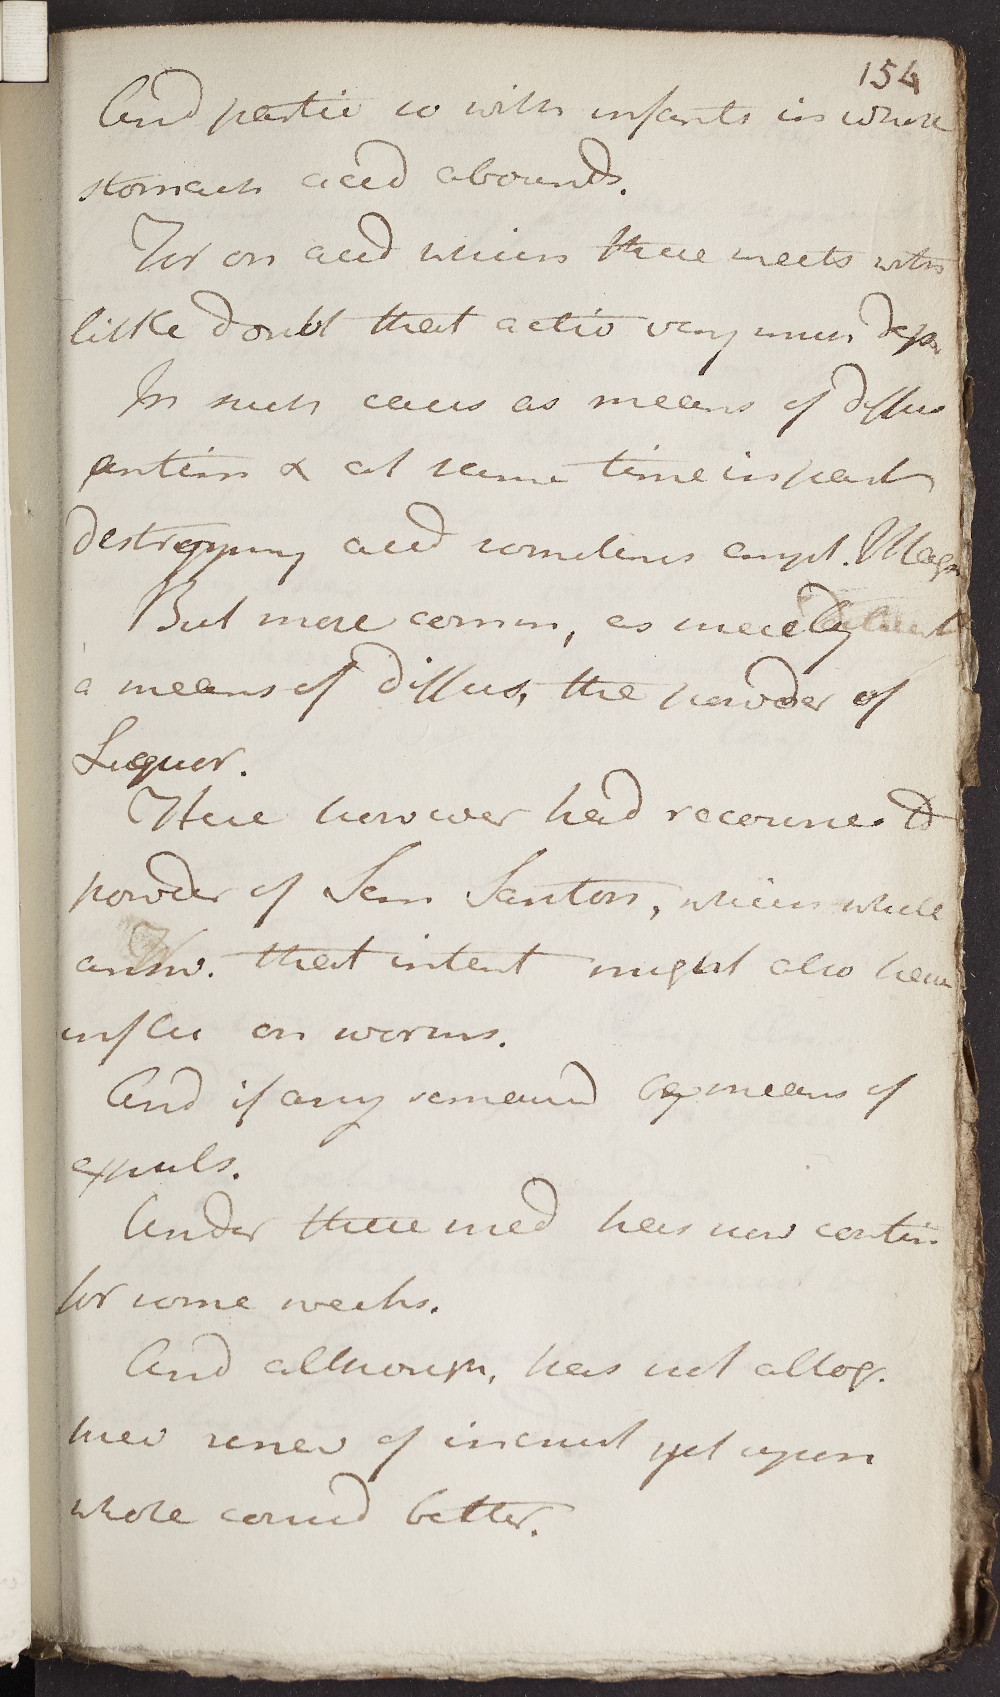 154
And partic so with infants in whose
stomach acid abounds.
For on acid which there meets with
little doubt that actio very much depe
In such cases as means of diffus
antim & at same time in part
destroying acid sometimes empl. Magn
But more comm, as merely
a means of diffus, the powder of
Liquor.
Here however had recourse to
powder of Sem Santon, which while
answ. that intent might also have
influ on worms.
And if any remaind by means of
expuls.
Under these med has now contin.
for some weeks.
And although, has not altog.
renew of incrust yet upon
whole considd better.